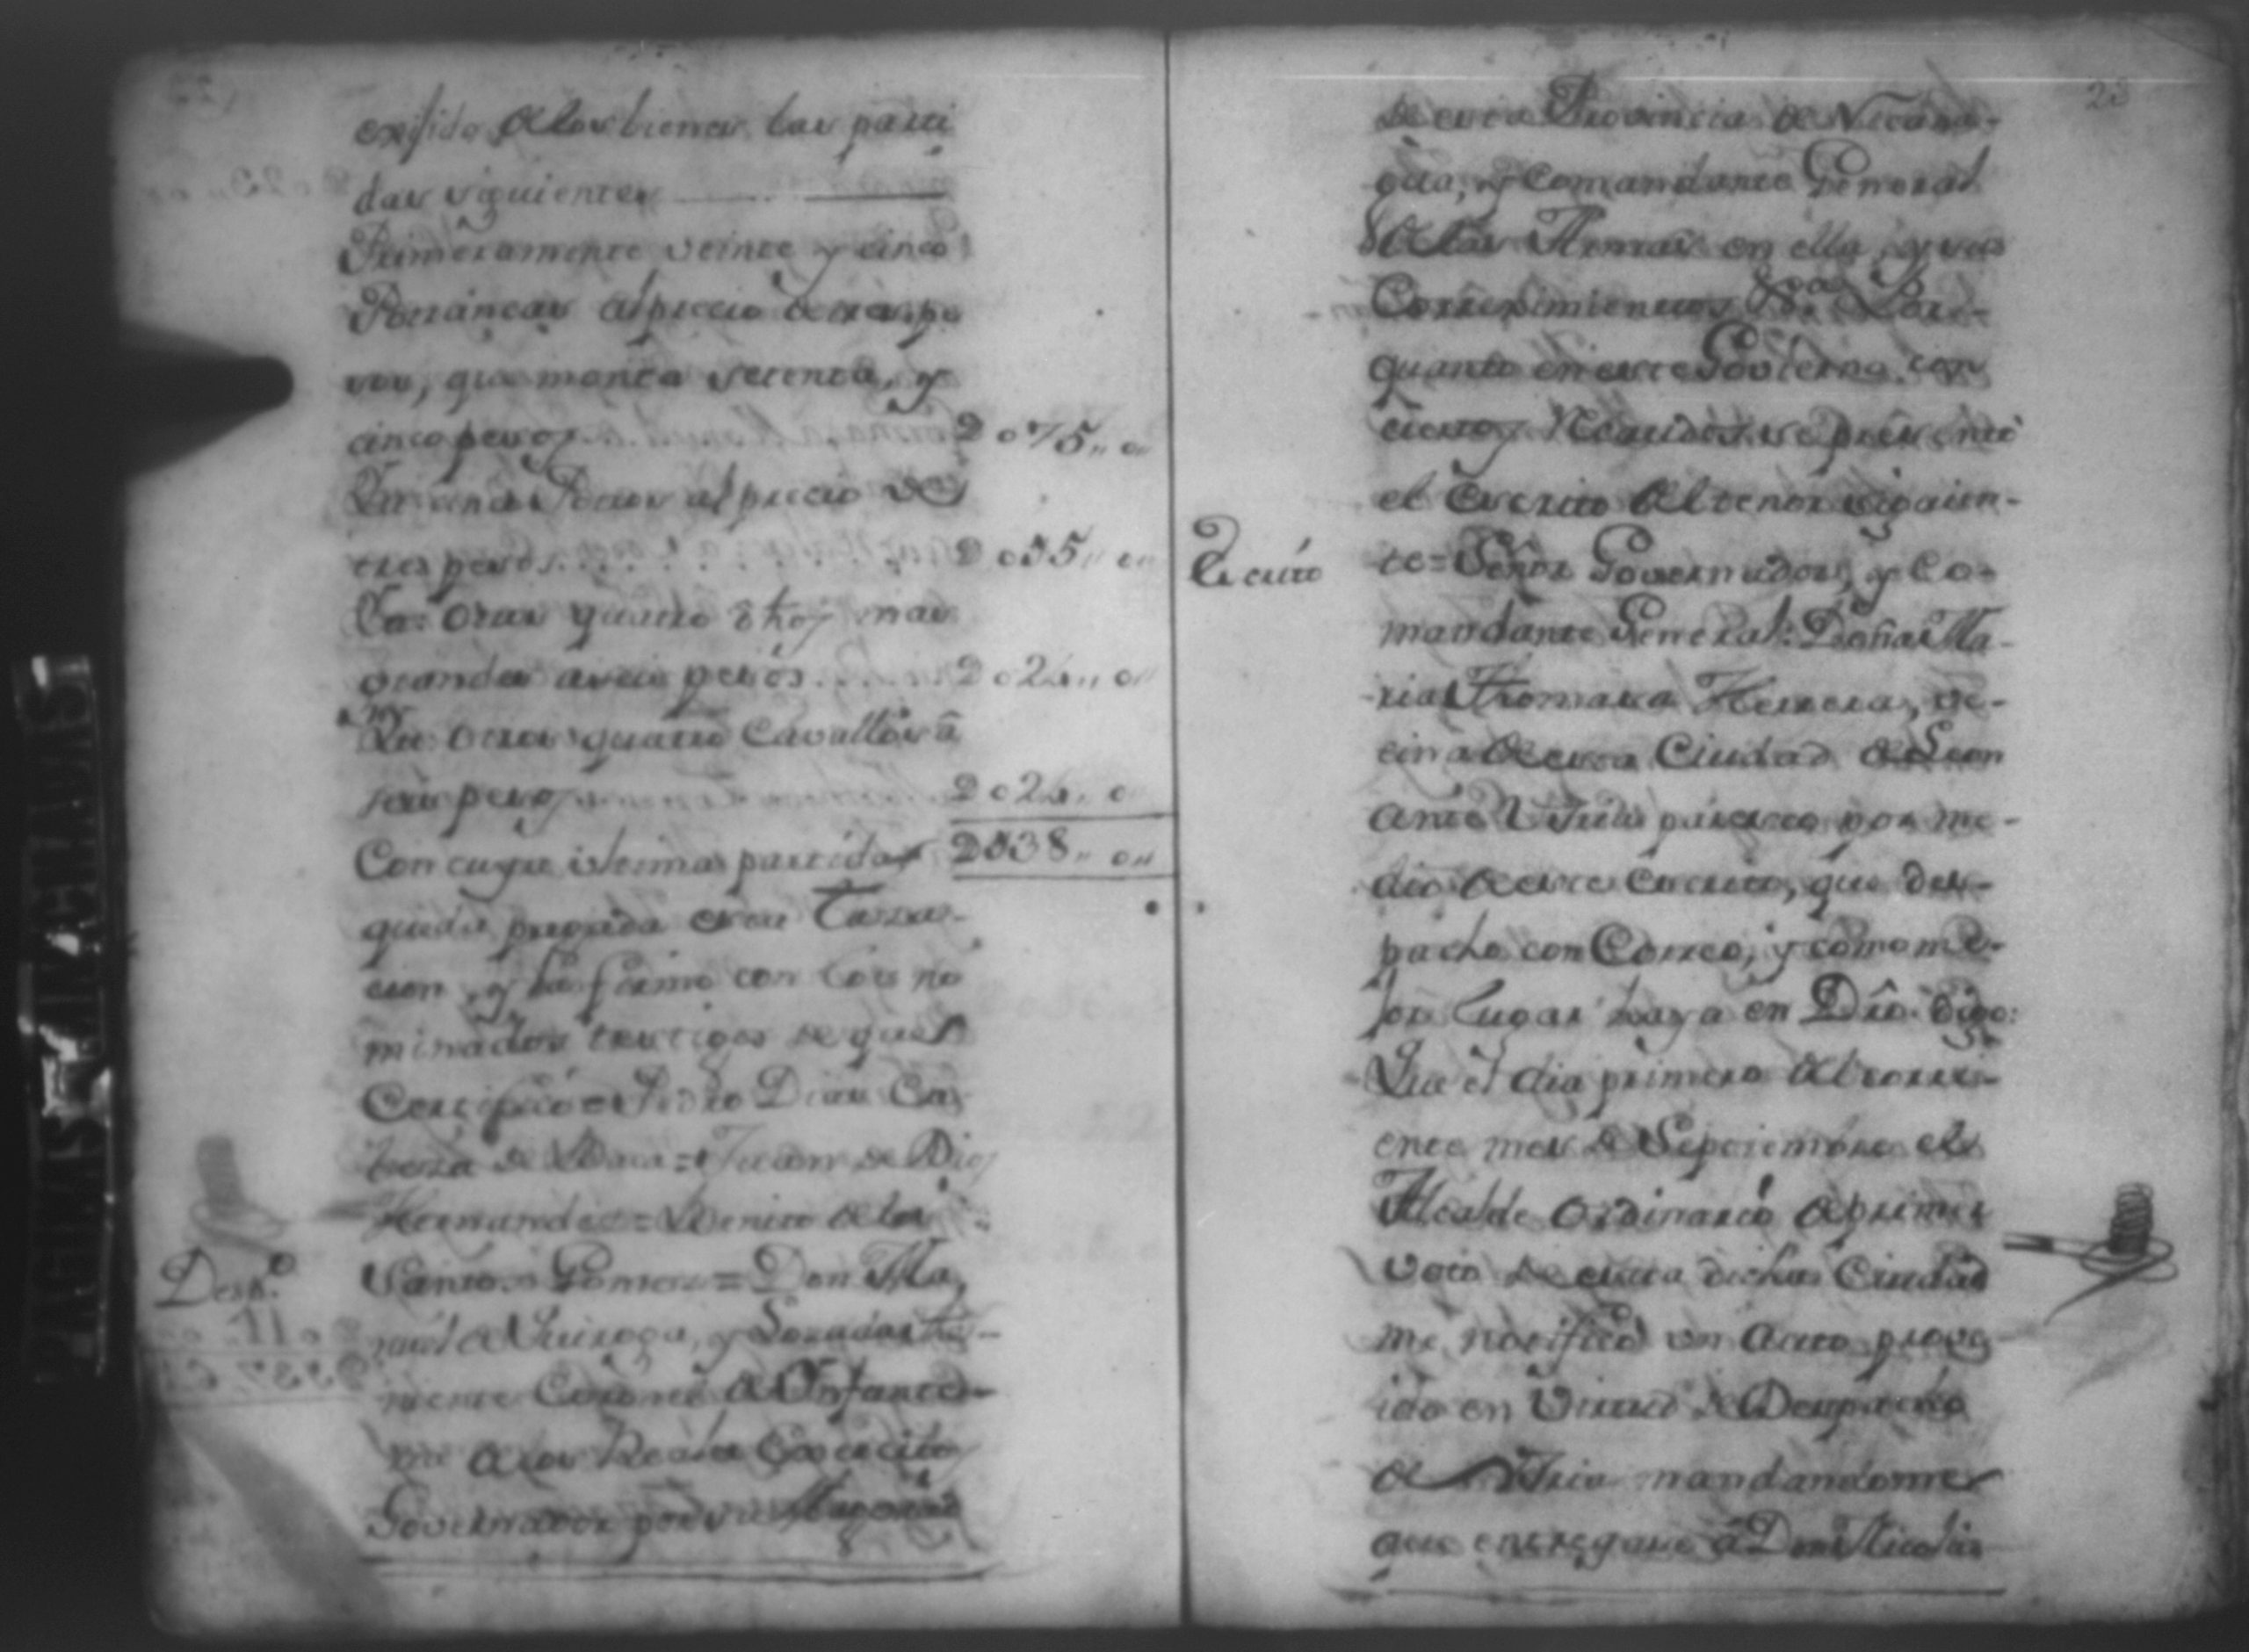 exsido de los bienes las parti
das siguientes
Primeramente veinte y cinco
Potrancas al precio de tres pe
sos, que monta setenta, y
cinco pesos 2 o75,, o,,
al precio de
tres pesos 2 o55,, o,,
Ytt. otras quatro dhos mas
grandes a seis pesos 2 o24,, o,,
Ytt. otros quatro Cavallos â
seis pesos 2 o24,, o,,
Con cuya ultima partida 2 538,, o,,
queda pagada esta Tassa-
cion, y la firmo con los no
minados testigos de que
Certifico = Pedro Dias Ca
beza de Baca = Juan de Dios
Hernandes = Benito de los
Santos Gomes = Don Ma,
Desp.º
nuel de Quiroga, y Losada The
niente Coronel de Ynfante-
ria de los Reales Exercitos
Governador por su Magestad
23
de esta Provincia de Nicara-
gua, y Comandante General
de las Armas en ella, y sus
Correximientos &.ª Por-
quanto en este Govierno con
ciertos Recaudos se presentó
el Escrito del tenor siguien-
Escrito
te = Señor Governador, y Co-
mandante General: Doña Ma-
ria Thomasa Herrera, ve-
cina de esta Ciudad de Leon
ante VSria paresco por me-
dio de este Escrito, que des-
pacho con Correo, y como me-
jor lugar haya en Dro. digo:
Que el dia primero del corri-
ente mes de Septiembre el
Alcalde Ordinario de primer
voto de esta dicha Ciudad
me notificó un Auto prove-
ido en Virtud de Despacho
de VSria mandandome
que entregase â Don Nicolas
PAGINAS MANCHADAS